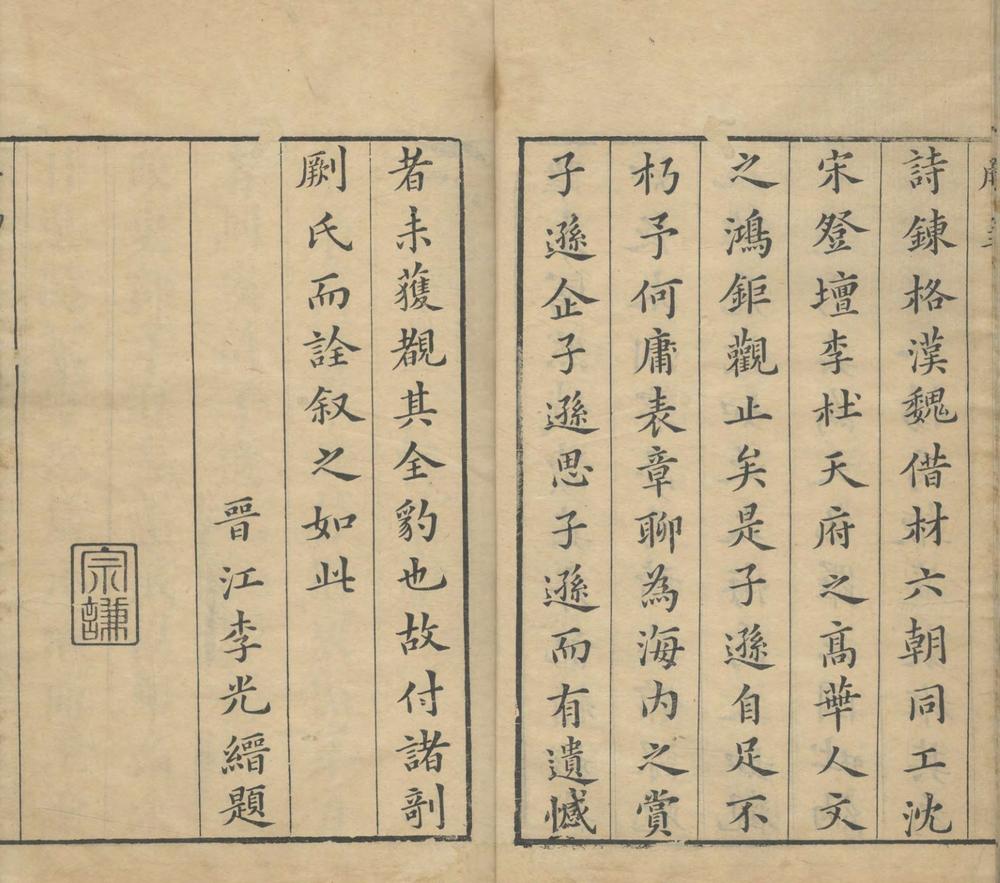 詩鍊格漢魏借材六朝同工沈
宋登壇李杜天府之高華人文
之鴻鉅觀止矣是子遜自足不
朽予何庸表章聊為海内之賞
子遜企子遜思子遜而有遺憾
者未獲覩其全豹也故付諸剖
劂氏而詮叙之如此
晉江李光縉題
宗謙